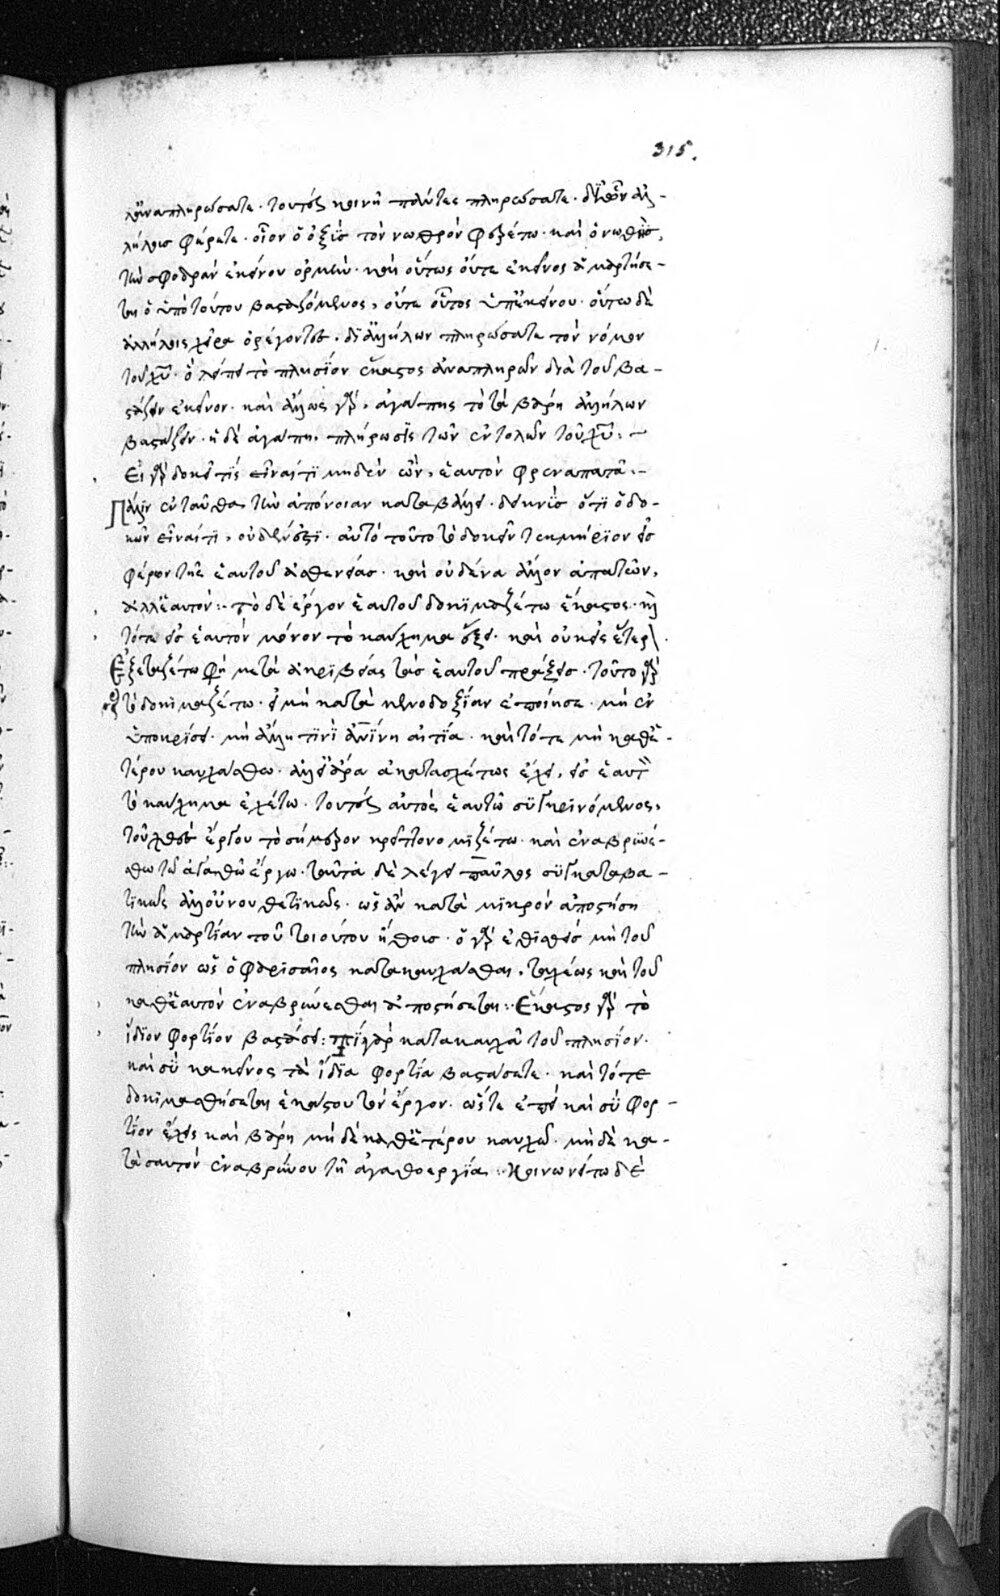 315.
ἀναπληρώσατε. τουτέστι κοινῇ πάντες πληρώσατε. δι' ὧν ἀλ-
λήλοις φέρετε. οἷον ὁ ὀξὺς τὸν νωθρὸν φερέτω. καὶ ὁ νωθὴς,
τὴν σφοδρὰν ἐκείνου ὁρμήν. καὶ οὕτως οὔτε ἐκεῖνος ἁμαρτήσε-
ται ὁ ὑπὸ τούτου βασταζόμενος, οὔτε οὗτος ὑπ' ἐκείνου. οὕτω δὲ
ἀλλήλοις χεῖρα ὀρέγοντες. δι' ἀλλήλων πληρώσατε τὸν νόμον
τοῦ χυ. ὁ λείπει τὸ πλησίον ἕκαστος ἀναπληρῶν διὰ τοῦ βα-
στάζειν ἐκεῖνον. καὶ ἄλλως γὰρ, ἀγάπης τὸ τὰ βάρη ἀλλήλων
βαστάζειν. ἡ δὲ ἀγάπη, πλήρωσις τῶν ἐντολῶν τοῦ χυ:
Εἰ γὰρ δοκεῖ τίς εἶναί τι μηδὲν ὢν, ἑαυτὸν φρεναπατᾷ:
Πάλιν ἐνταῦθα τὴν ἀπόνοιαν καταβάλλει. δεικνὺς ὅτι ὁ δο-
κῶν εἶναί τι, οὐδέν ἐστι. αὐτὸ τοῦτο τὸ δοκεῖν τεκμήριον εἰσ
φέρων τῆς ἑαυτοῦ ἀσθενείας. καὶ οὐδένα ἄλλον ἀπατῶν,
ἀλλ' ἑαυτόν: τὸ δὲ ἔργον ἑαυτοῦ δοκιμαζέτω ἕκαστος. καὶ
τότε εἰς ἑαυτὸν μόνον τὸ καύχημα ἕξει. καὶ οὐκ εἰς ἕτερον.
Ἐξεταζέτω φησὶ μετὰ ἀκριβείας τὰς ἑαυτοῦ πράξεις. τοῦτο γὰρ
ἐστι τὸ δοκιμαζέτω. εἰ μὴ κατὰ κενοδοξίαν ἐποίησε. μὴ ἐν
ὑποκρίσει. μὴ ἄλλῃ τινὶ ἀνθρωπίνῃ αἰτίᾳ. καὶ τότε μὴ καθ' ἑ-
τέρου καυχάσθω. ἀλλ' εἰ ἄρα ἀκατασχέτως ἔχει, εἰς ἑαυτὸν
τὸ καύχημα ἐχέτω. τουτέστιν αὐτὸς ἑαυτῷ συγκρινόμενος,
τοῦ χθὲς ἔργου τὸ σήμερον κρεῖττον νομιζέτω. καὶ ἐναβρυνέ-
σθω τῷ ἀγαθῷ ἔργῳ. ταῦτα δὲ λέγει παῦλος συγκαταβα-
τικῶς ἀλλ' οὐ νομοθετικῶς. ὡς ἂν κατὰ μικρὸν ἀποστήσῃ
τὴν ἁμαρτίαν τοῦ τοιούτου ἤθους. ὁ γὰρ ἐθισθεὶς μὴ τοῦ
πλησίον ὡς ὁ φαρισαῖος κατακαυχᾶσθαι, ταχέως καὶ τοῦ
καθ' ἑαυτὸν ἐναβρύνεσθαι ἀποστήσεται: Ἕκαστος γὰρ τὸ
ἴδιον φορτίον βαστάσει: τί γὰρ κατακαυχᾷ τοῦ πλησίον.
καὶ σὺ κἀκεῖνος τὰ ἴδια φορτία βαστάσετε. καὶ τότε
δοκιμασθήσεται ἑκάστου τὸ ἔργον. ὥστε ἐπεὶ καὶ σὺ φορ-
τίον ἔχεις καὶ βάρη μηδὲ καθ' ἑτέρου καυχῶ. μηδὲ κα-
τὰ σαυτὸν ἐναβρύνου τῇ ἀγαθοεργίᾳ: Κοινωνείτω δὲ